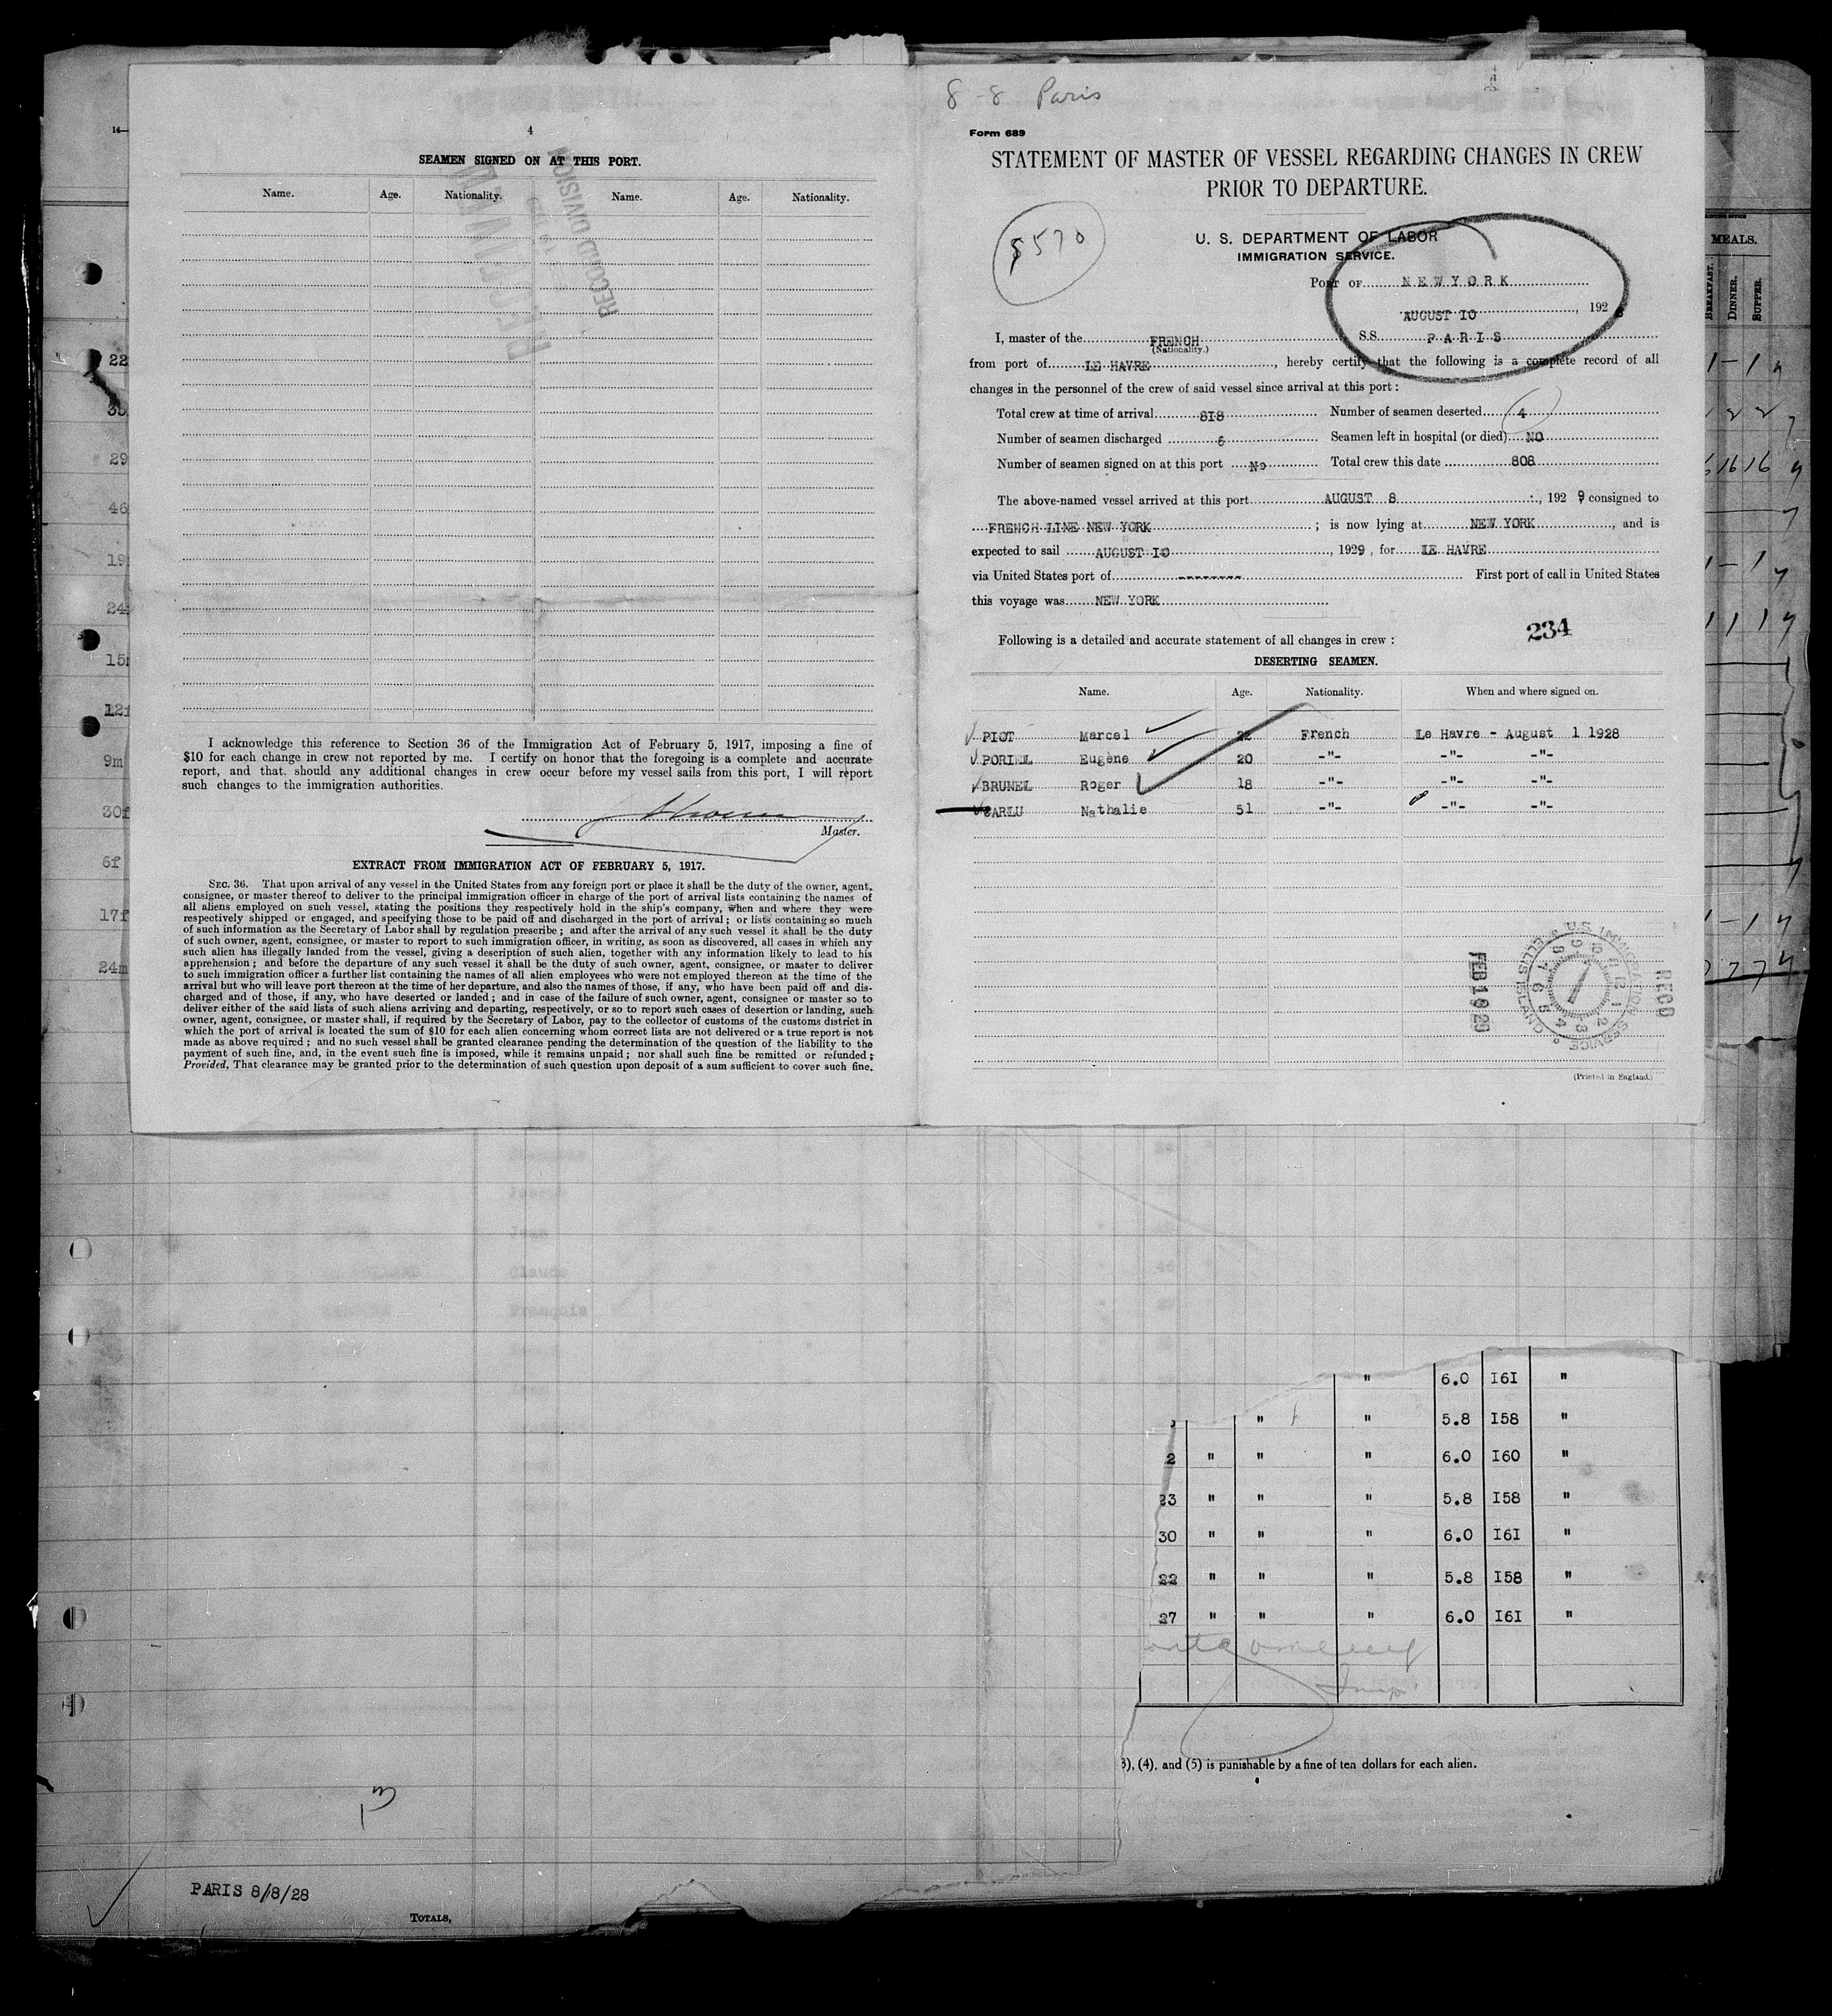 4
SEAMEN SIGNED ON AT THIS PORT.
Name. Age. Nationality. Name. Age. Nationality.
RECORD DIVISION
I acknowledge this reference to Section 36 of the Immigration Act of February 5, 1917, imposing a fine of
$10 for each change in crew not reported by me. I certify on honor that the foregoing is a complete and accurate
report, and that. should any additional changes in crew occur before my vessel sails from this port, I will report
such changes to the immigration authorities.
Master.
EXTRACT FROM IMMIGRATION ACT OF FEBRUARY 5, 1917.
SEC. 36. That upon arrival of any vessel in the United States from any foreign port or place it shall be the duty of the owner, agent,
consignee, or master thereof to deliver to the principal immigration officer in charge of the port of arrival lists containing the names of
all aliens employed on such vessel, stating the positions they respectively hold in the ship's company, when and where they were
respectively shipped or engaged, and specifying those to be paid off and discharged in the port of arrival; or lists containing so much
of such information as the Secretary of Labor shall by regulation prescribe; and after the arrival of any such vessel it shall be the duty
of such owner, agent, consignee, or master to report to such immigration officer, in writing, as soon as discovered, all cases in which any
such alien has illegally landed from the vessel, giving a description of such alien, together with any information likely to lead to his
apprehension; and before the departure of any such vessel it shall be the duty of such owner, agent, consignee, or master to deliver
to such immigration officer a further list containing the names of all alien employees who were not employed thereon at the time of the
arrival but who will leave port thereon at the time of her departure, and also the names of those, if any, who have been paid off and dis-
charged and of those, if any, who have deserted or landed; and in case of the failure of such owner, agent, consignee or master so to
deliver either of the said lists of such aliens arriving and departing, respectively, or so to report such cases of desertion or landing, such
owner, agent, consignee, or master shall, if required by the Secretary of Labor, pay to the collector of customs of the customs district in
which the port of arrival is located the sum of $10 for each alien concerning whom correct lists are not delivered or a true report is not
made as above required; and no such vessel shall be granted clearance pending the determination of the question of the liability to the
payment of such fine, and, in the event such fine is imposed, while it remains unpaid; nor shall such fine be remitted or refunded;
Provided, That clearance may be granted prior to the determination of such question upon deposit of a sum sufficient to cover such fine.
8-8 Paris
Form 689
STATEMENT OF MASTER OF VESSEL REGARDING CHANGES IN CREW
PRIOR TO DEPARTURE.
8570
U. S. DEPARTMENT OF LABOR
IMMIGRATION SERVICE.
PORT OF NEW YORK
AUGUST 10, 1928
I, master of the FRENCH S.S. PARIS
(Nationality.)
from port of LE HAVRE, hereby certify that the following is a complete record of all
changes in the personnel of the crew of said vessel since arrival at this port:
Total crew at time of arrival 818 Number of seamen deserted 4
Number of seamen discharged 6 Seamen left in hospital (or died) NO
Number of seamen signed on at this port No Total crew this date 808
The above-named vessel arrived at this port AUGUST 8, 1929 consigned to
FRENCH LINE NEW YORK; is now lying at NEW YORK, and is
expected to sail AUGUST 10, 1929, for LE HAVRE
via United States port of -------- First port of call in United States
this voyage was NEW YORK
Following is a detailed and accurate statement of all changes in crew:
234
DESERTING SEAMEN.
Name. Age. Nationality. When and where signed on.
PIOT Marcel 22 French Le Havre - August 1 1928
PORIEL Eugène 20 -"- -"- -"-
BRUNEL Roger 18 -"- -"- -"-
CARLU Nathalie 51 -"- -"- -"-
REC'D
U.S. IMMIGRATION SERVICE ELLIS ISLAND
(Printed in England.)
MEALS.
BREAKFAST. DINNER. SUPPER.
14
22
29
46
19
24
15
12f
9m
30f
6f
17f
24m
" 6.0 161 "
" " 5.8 158 "
2 " " " 6.0 160 "
23 " " " 5.8 158 "
30 " " " 6.0 161 "
22 " " " 5.8 158 "
27 " " " 6.0 161 "
3), (4), and (5) is punishable by a fine of ten dollars for each alien.
PARIS 8/8/28
TOTALS,